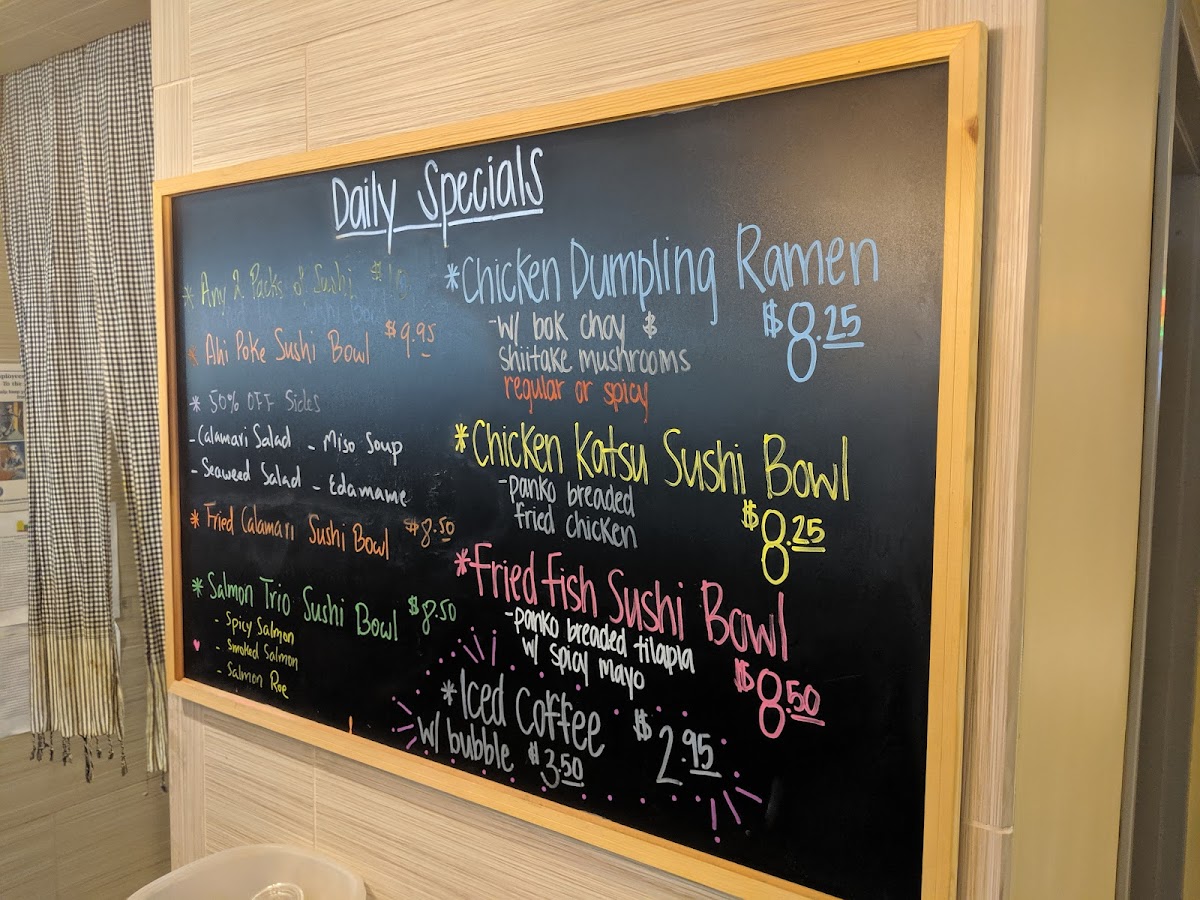 Daily Specials
* Any 2 Packs of Sushi $10
* Ahi Poke Sushi Bowl $9.95
* 50% OFF Sides
- Calamari Salad - Miso Soup
- Seaweed Salad - Edamame
* Fried Calamari Sushi Bowl $8.50
* Salmon Trio Sushi Bowl $8.50
- Spicy Salmon
- Smoked Salmon
- Salmon Roe
* Chicken Dumpling Ramen
- w/ bok choy &
shiitake mushrooms
$8.25
regular or spicy
* Chicken Katsu Sushi Bowl
- panko breaded
fried chicken
$8.25
* Fried Fish Sushi Bowl
- panko breaded tilapia
w/ spicy mayo
$8.50
* Iced Coffee $2.95
w/ bubble $3.50